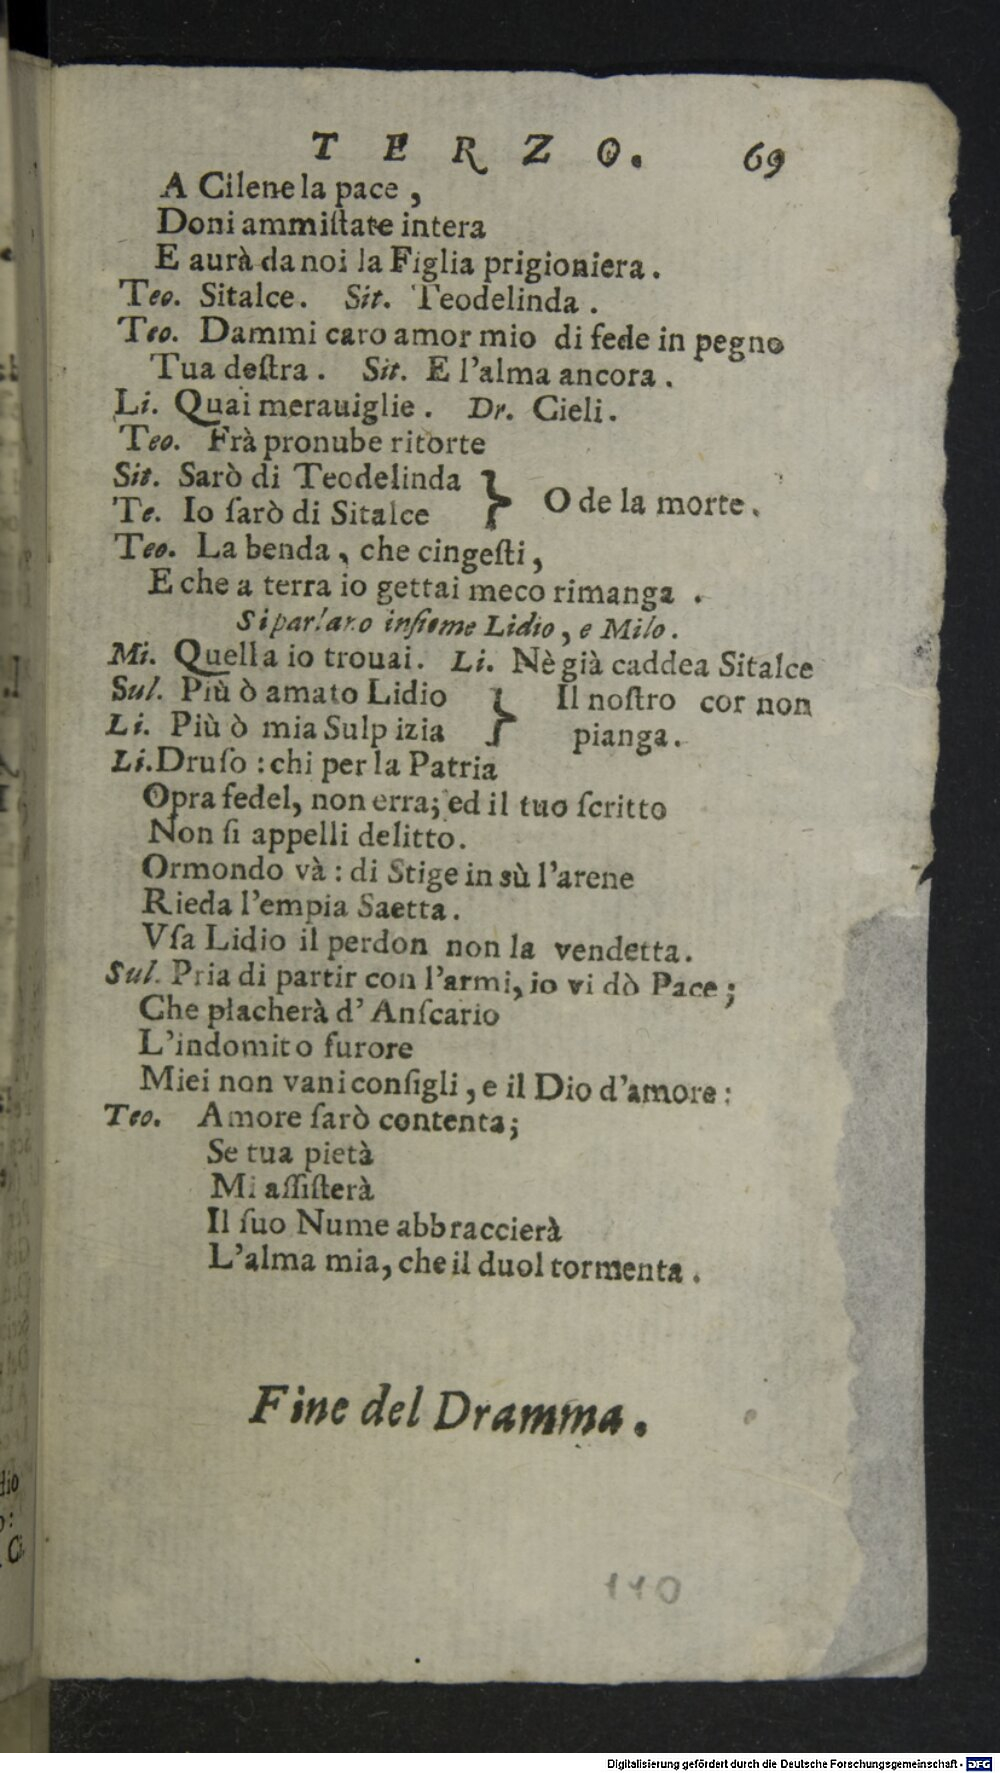 TERZO. 69
A Cilene la pace ,
Doni ammiſtate intera
E aurà da noi la Figlia prigioniera .
Teo. Sitalce . Sit. Teodelinda .
Teo. Dammi caro amor mio di fede in pegno
Tua deſtra . Sit. E l'alma ancora .
Li. Quai merauiglie . Dr. Cieli .
Teo. Frà pronube ritorte
Sit. Sarò di Teodelinda } O de la morte .
Te. Io ſarò di Sitalce
Teo. La benda , che cingeſti ,
E che a terra io gettai meco rimanga .
Si parlano inſieme Lidio , e Milo .
Mi. Quella io trouai . Li. Nè già caddea Sitalce
Sul. Più ò amato Lidio } Il noſtro cor non
Li. Più ò mia Sulpizia pianga .
Li. Druſo : chi per la Patria
Opra fedel, non erra; ed il tuo ſcritto
Non ſi appelli delitto .
Ormondo và : di Stige in sù l'arene
Rieda l'empia Saetta .
Vſa Lidio il perdon non la vendetta .
Sul. Pria di partir con l'armi, io vi dò Pace ;
Che placherà d' Anſcario
L'indomito furore
Miei non vani conſigli , e il Dio d'amore :
Teo. Amore ſarò contenta ;
Se tua pietà
Mi aſſiſterà
Il ſuo Nume abbraccierà
L'alma mia, che il duol tormenta .
Fine del Dramma .
110
dio
o :
Digitalisierung gefördert durch die Deutsche Forschungsgemeinschaft - DFG